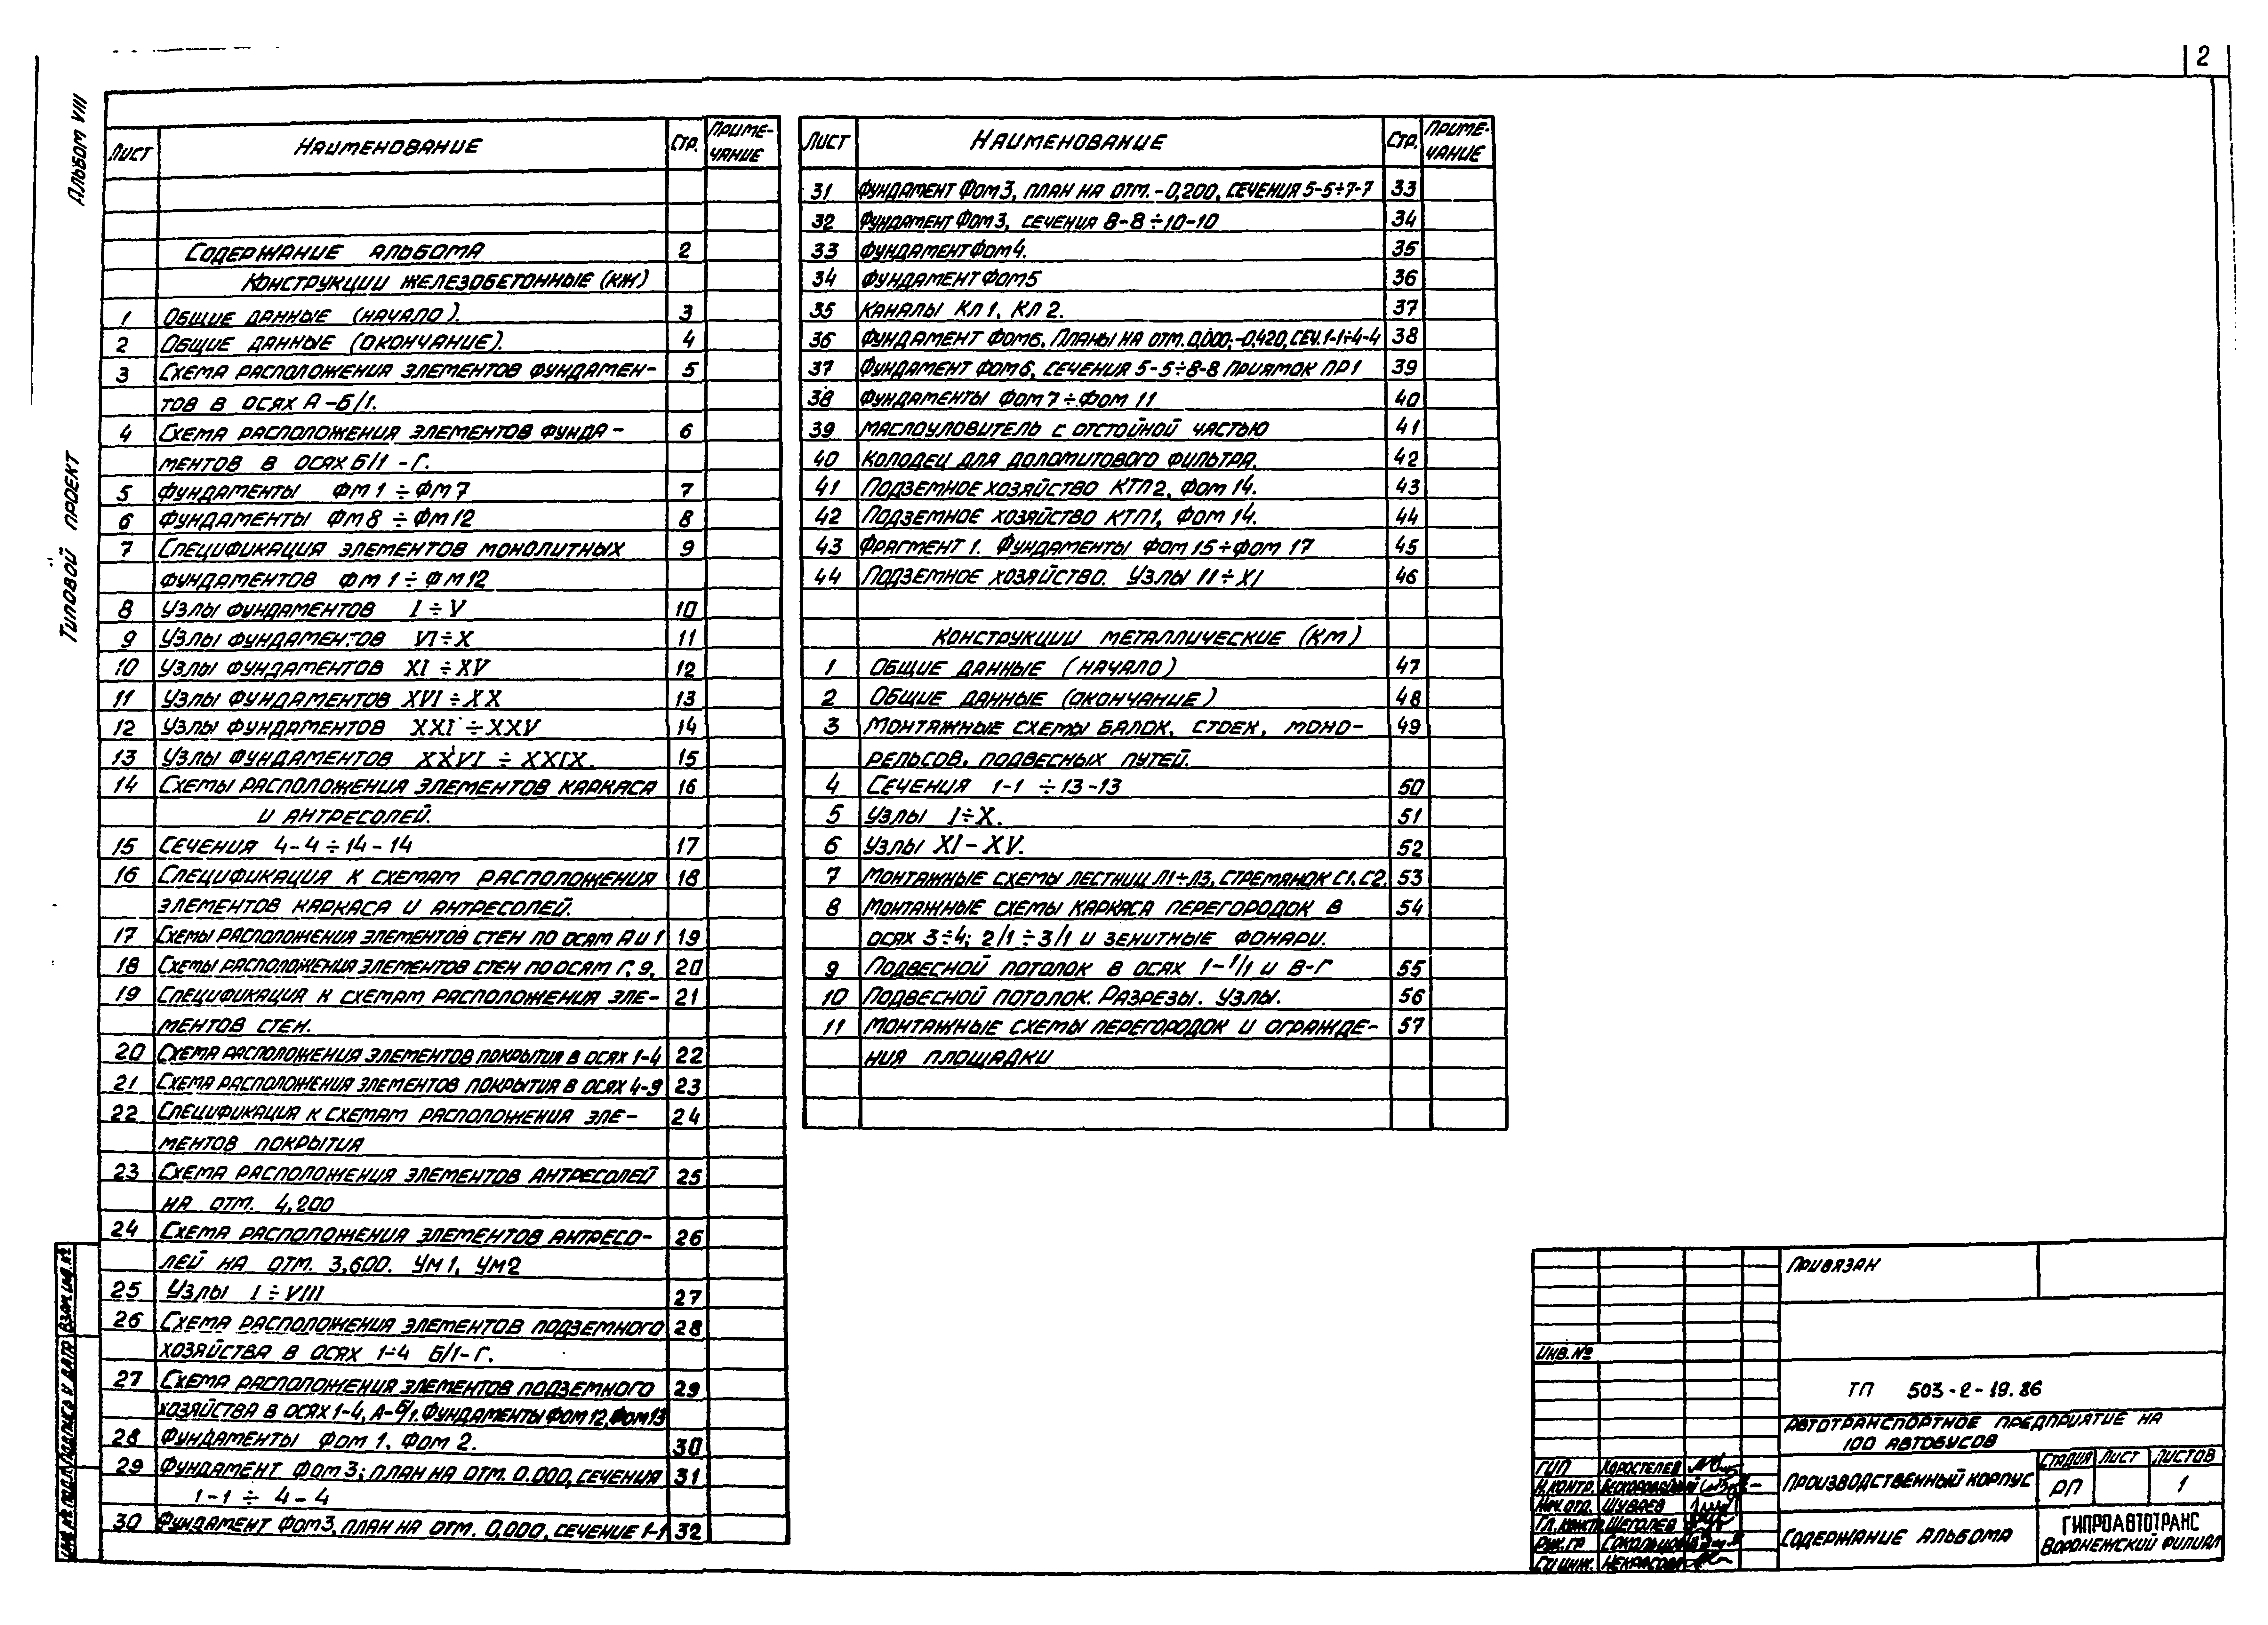 2
Альбом VIII
Типовой проект
Лист Наименование Стр. Примечание
Содержание альбома 2
Конструкции железобетонные (КЖ)
1 Общие данные (начало). 3
2 Общие данные (окончание). 4
3 Схема расположения элементов фундамен- 5
тов в осях А-Б/1.
4 Схема расположения элементов фунда- 6
ментов в осях Б/1 -Г.
5 Фундаменты Фм 1 ÷ Фм 7 7
6 Фундаменты Фм 8 ÷ Фм 12 8
7 Спецификация элементов монолитных 9
фундаментов Фм 1 ÷ Фм 12
8 Узлы фундаментов I ÷ V 10
9 Узлы фундаментов VI ÷ X 11
10 Узлы фундаментов XI ÷ XV 12
11 Узлы фундаментов XVI ÷ XX 13
12 Узлы фундаментов XXI ÷ XXV 14
13 Узлы фундаментов XXVI ÷ XXIX. 15
14 Схемы расположения элементов каркаса 16
и антресолей.
15 Сечения 4-4 ÷ 14-14 17
16 Спецификация к схемам расположения 18
элементов каркаса и антресолей.
17 Схемы расположения элементов стен по осям А и 1 19
18 Схемы расположения элементов стен по осям Г, 9. 20
19 Спецификация к схемам расположения эле- 21
ментов стен.
20 Схема расположения элементов покрытия в осях 1-4 22
21 Схема расположения элементов покрытия в осях 4-9 23
22 Спецификация к схемам расположения эле- 24
ментов покрытия
23 Схема расположения элементов антресолей 25
на отм. 4,200
24 Схема расположения элементов антресо- 26
лей на отм. 3,600. Ум1, Ум2
25 Узлы I ÷ VIII 27
26 Схема расположения элементов подземного 28
хозяйства в осях 1÷4 Б/1-Г.
27 Схема расположения элементов подземного 29
хозяйства в осях 1-4, А-Б/1. Фундаменты Фом 12, Фом 13
28 Фундаменты Фом 1, Фом 2. 30
29 Фундамент Фом 3; план на отм. 0.000, сечения 31
1-1 ÷ 4-4
30 Фундамент Фом 3, план на отм. 0,000, сечение 1-1 32
Лист Наименование Стр. Примечание
31 Фундамент Фом 3, план на отм. -0,200, сечения 5-5÷7-7 33
32 Фундамент Фом 3, сечения 8-8 ÷ 10-10 34
33 Фундамент Фом 4. 35
34 Фундамент Фом 5 36
35 Каналы Кл 1, Кл 2. 37
36 Фундамент Фом 6. Планы на отм. 0,000; -0,420, сеч. 1-1÷4-4 38
37 Фундамент Фом 6, сечения 5-5÷8-8 приямок ПР1 39
38 Фундаменты Фом 7 ÷ Фом 11 40
39 Маслоуловитель с отстойной частью 41
40 Колодец для доломитового фильтра. 42
41 Подземное хозяйство КТП2, Фом 14. 43
42 Подземное хозяйство КТП1, Фом 14. 44
43 Фрагмент 1. Фундаменты Фом 15 ÷ Фом 17 45
44 Подземное хозяйство. Узлы II ÷ XI 46
Конструкции металлические (КМ)
1 Общие данные (начало) 47
2 Общие данные (окончание) 48
3 Монтажные схемы балок, стоек, моно- 49
рельсов, подвесных путей.
4 Сечения 1-1 ÷ 13-13 50
5 Узлы I÷X. 51
6 Узлы XI - XV. 52
7 Монтажные схемы лестниц Л1÷Л3, стремянок С1, С2. 53
8 Монтажные схемы каркаса перегородок в 54
осях 3÷4; 2/1 ÷ 3/1 и зенитные фонари.
9 Подвесной потолок в осях 1-1/1 и В-Г 55
10 Подвесной потолок. Разрезы. Узлы. 56
11 Монтажные схемы перегородок и огражде- 57
ния площадки
Инв. № подл. Подпись и дата Взам. инв. №
Привязан
Инв. №
ТП 503-2-19.86
Автотранспортное предприятие на
100 автобусов
ГИП Коростелев
Н. контр.
Нач. отд. Шуваев
Гл. констр. Щеголев
Рук. гр
Ст инж. Некрасова
Производственный корпус
Стадия Лист Листов
РП 1
Содержание альбома
ГИПРОАВТОТРАНС
Воронежский филиал